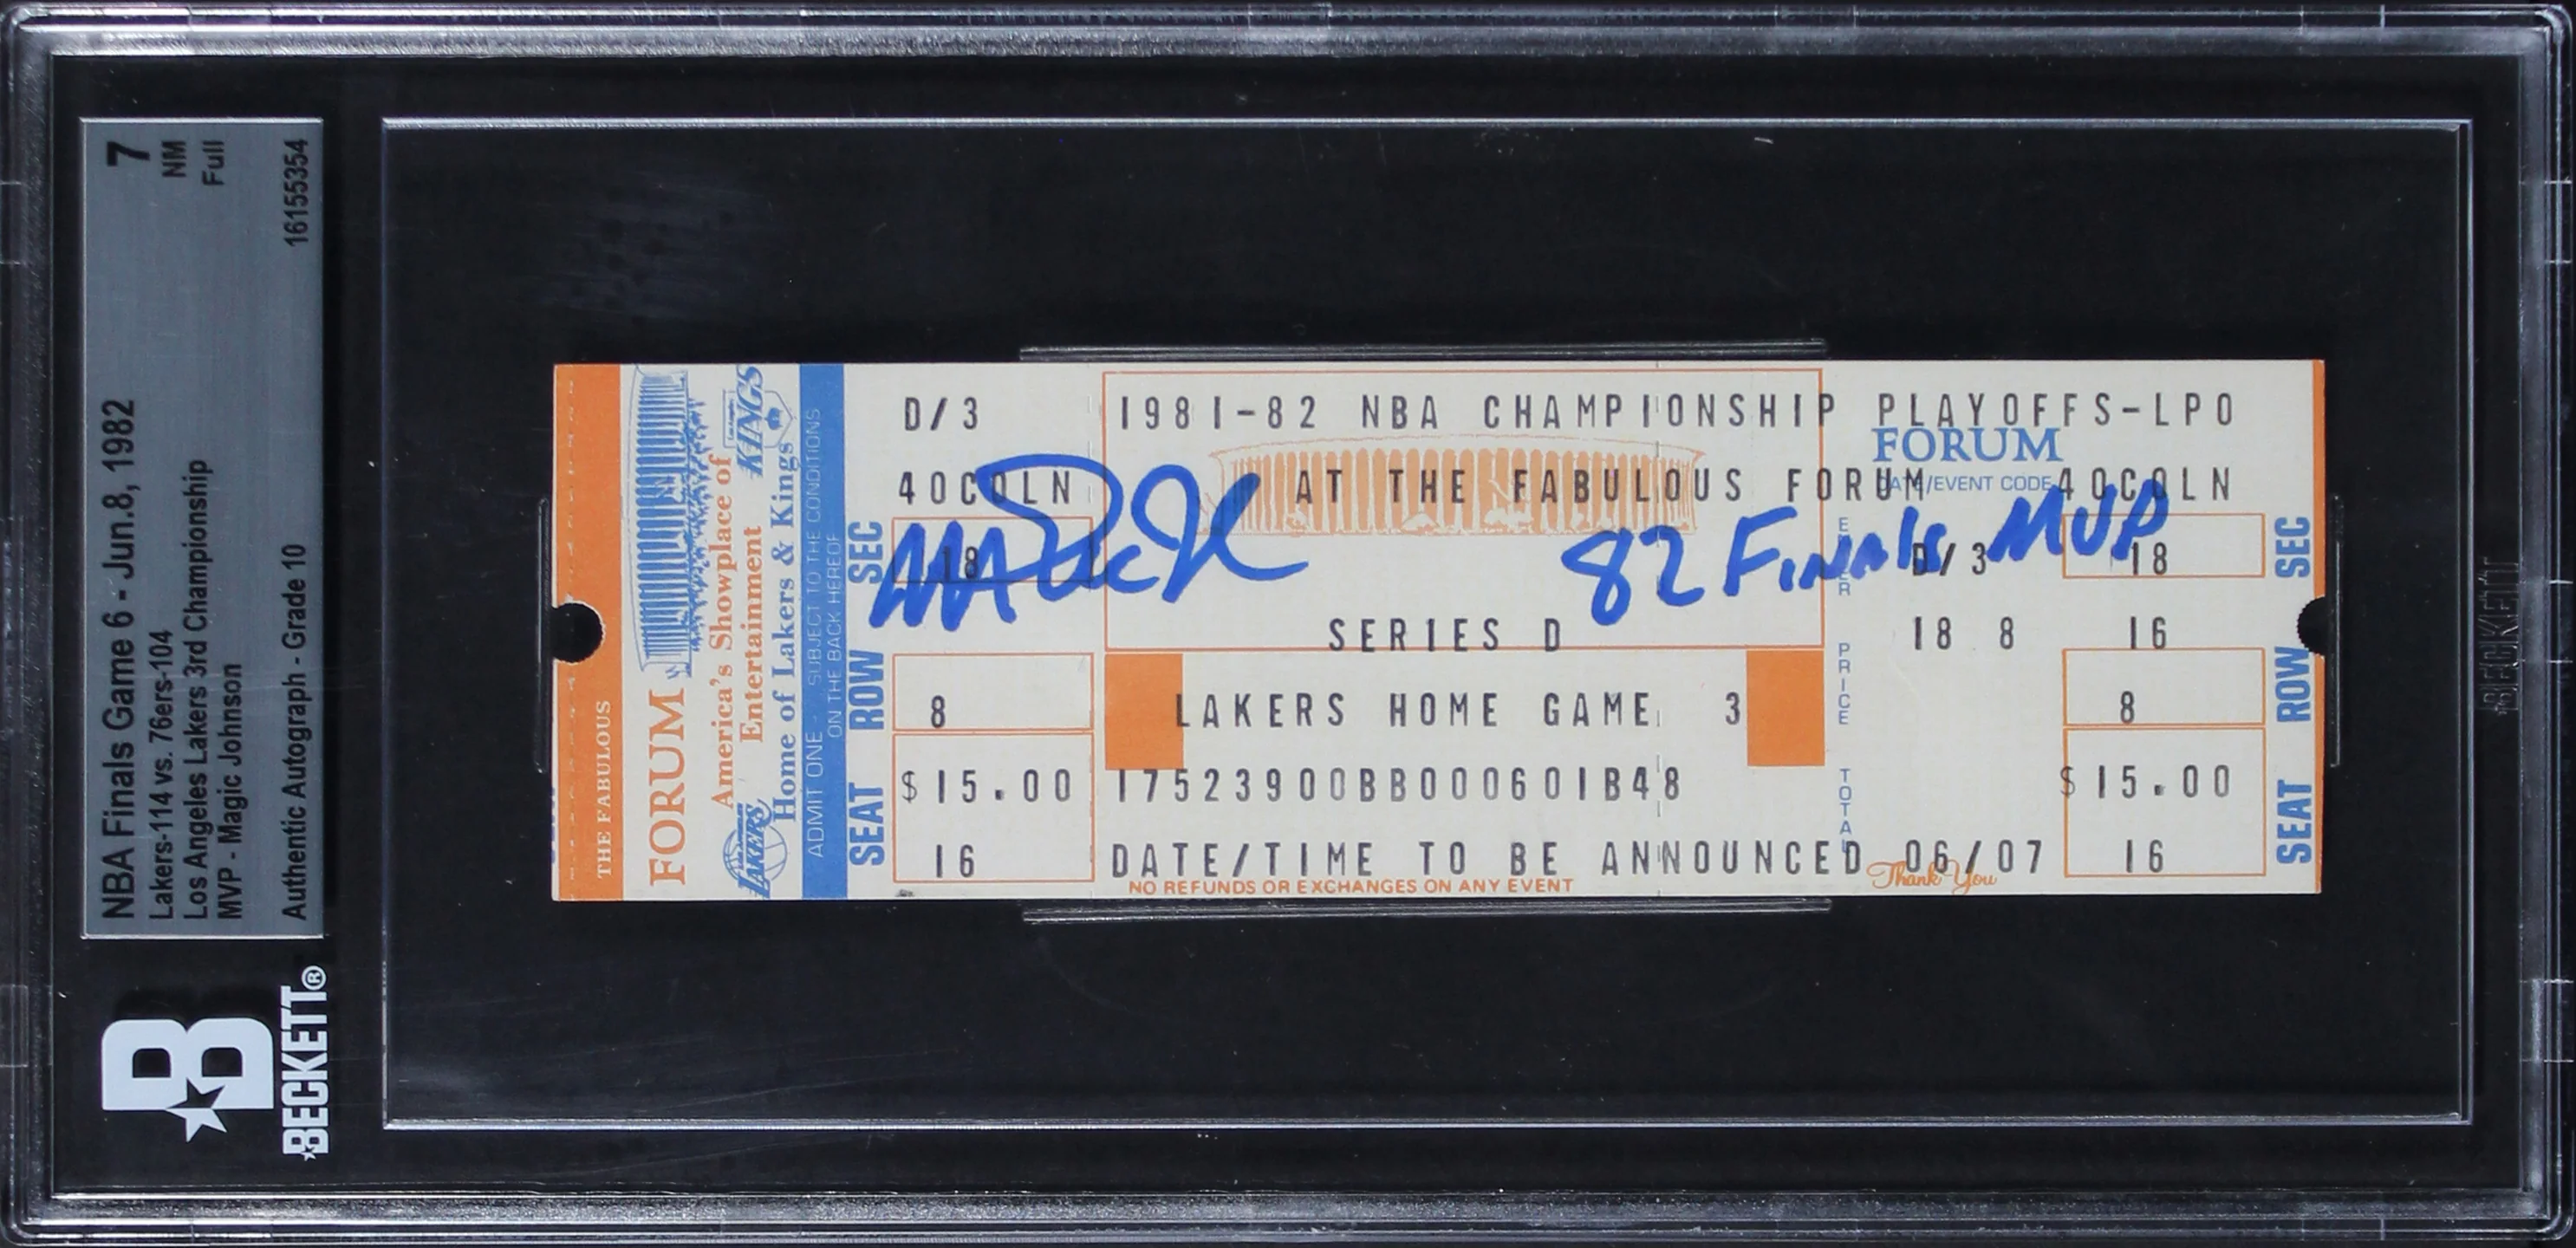 7
NM
Full
16155354
NBA Finals Game 6 - Jun.8, 1982
Lakers-114 vs. 76ers-104
Los Angeles Lakers 3rd Championship
MVP - Magic Johnson
Authentic Autograph - Grade 10
BECKETT®
THE FABULOUS
FORUM
America's Showplace of
Entertainment
Home of Lakers & Kings
KINGS
LAKERS
ADMIT ONE - SUBJECT TO THE CONDITIONS
ON THE BACK HEREOF
SEAT ROW SEC
D/3 1981-82 NBA CHAMPIONSHIP PLAYOFFS-LPO
FORUM
40COLN AT THE FABULOUS FORUM 40COLN
DATE/EVENT CODE
82 Finals MVP
18 D/3 18
SERIES D 18 8 16
8 LAKERS HOME GAME 3 8
PRICE
$15.00 17523900BB000601B48 $15.00
TOTAL
16 DATE/TIME TO BE ANNOUNCED 06/07 16
NO REFUNDS OR EXCHANGES ON ANY EVENT
Thank You
SEAT ROW SEC
BECKETT